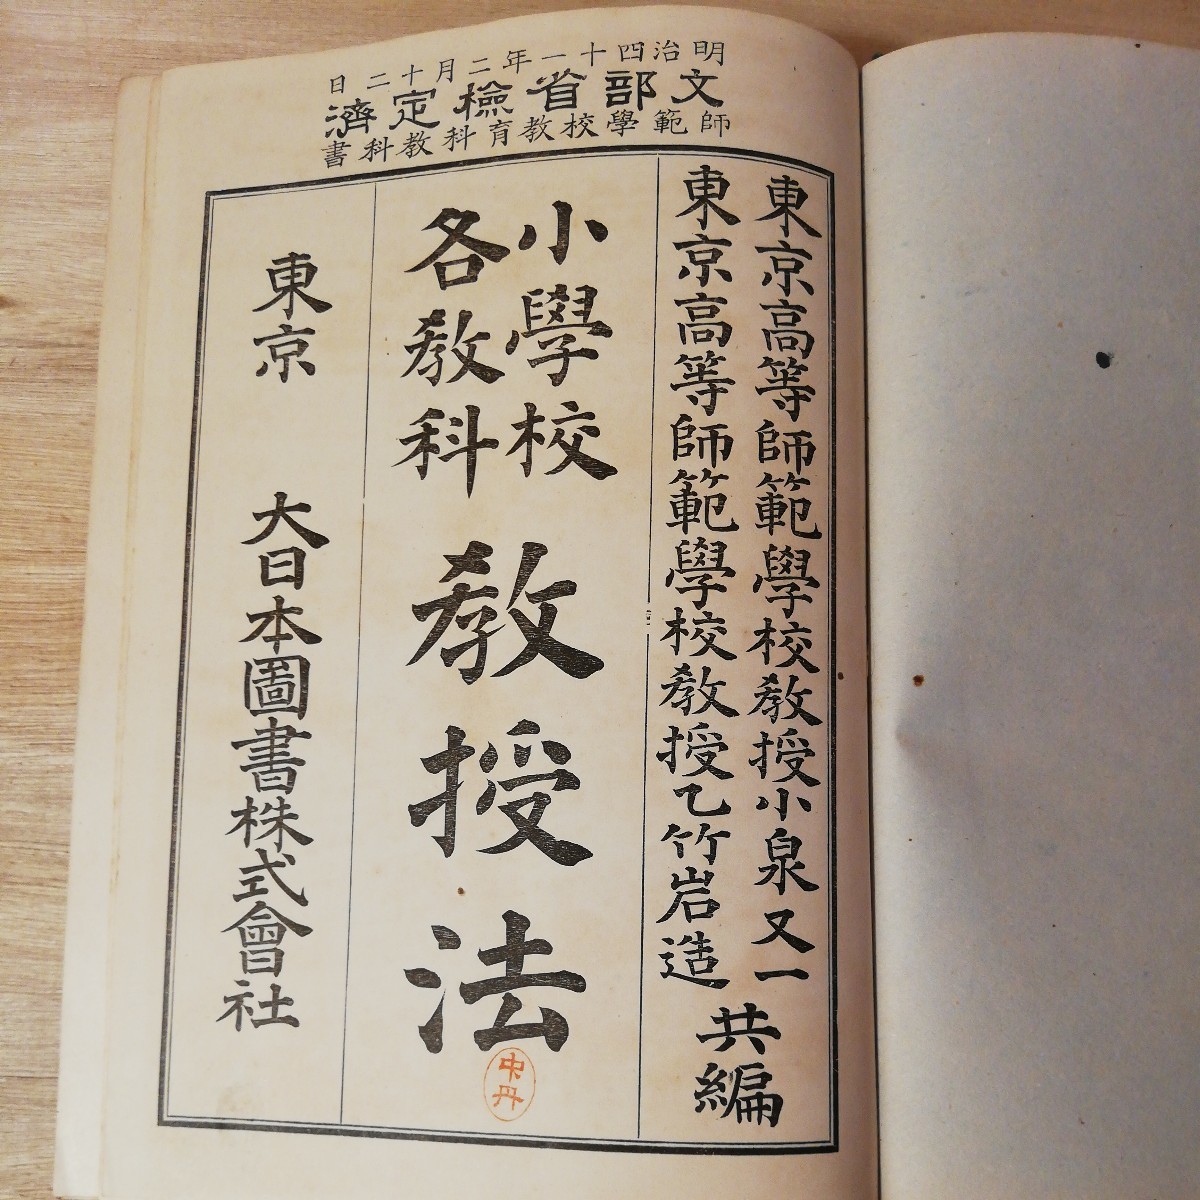 明治四十一年二月十二日
文部省檢定濟
師範學校教育科教科書
東京高等師範學校教授小泉又一
東京高等師範學校教授乙竹岩造
共編
小學校
各教科
教授法
東京 大日本圖書株式會社
中丹